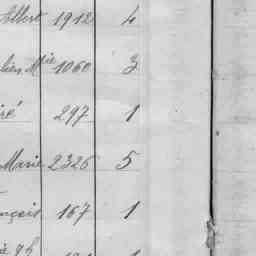 Albert 1912 4
lien Mie 1060 3
ré 297 1
Marie 2326 5
nçois 167 1